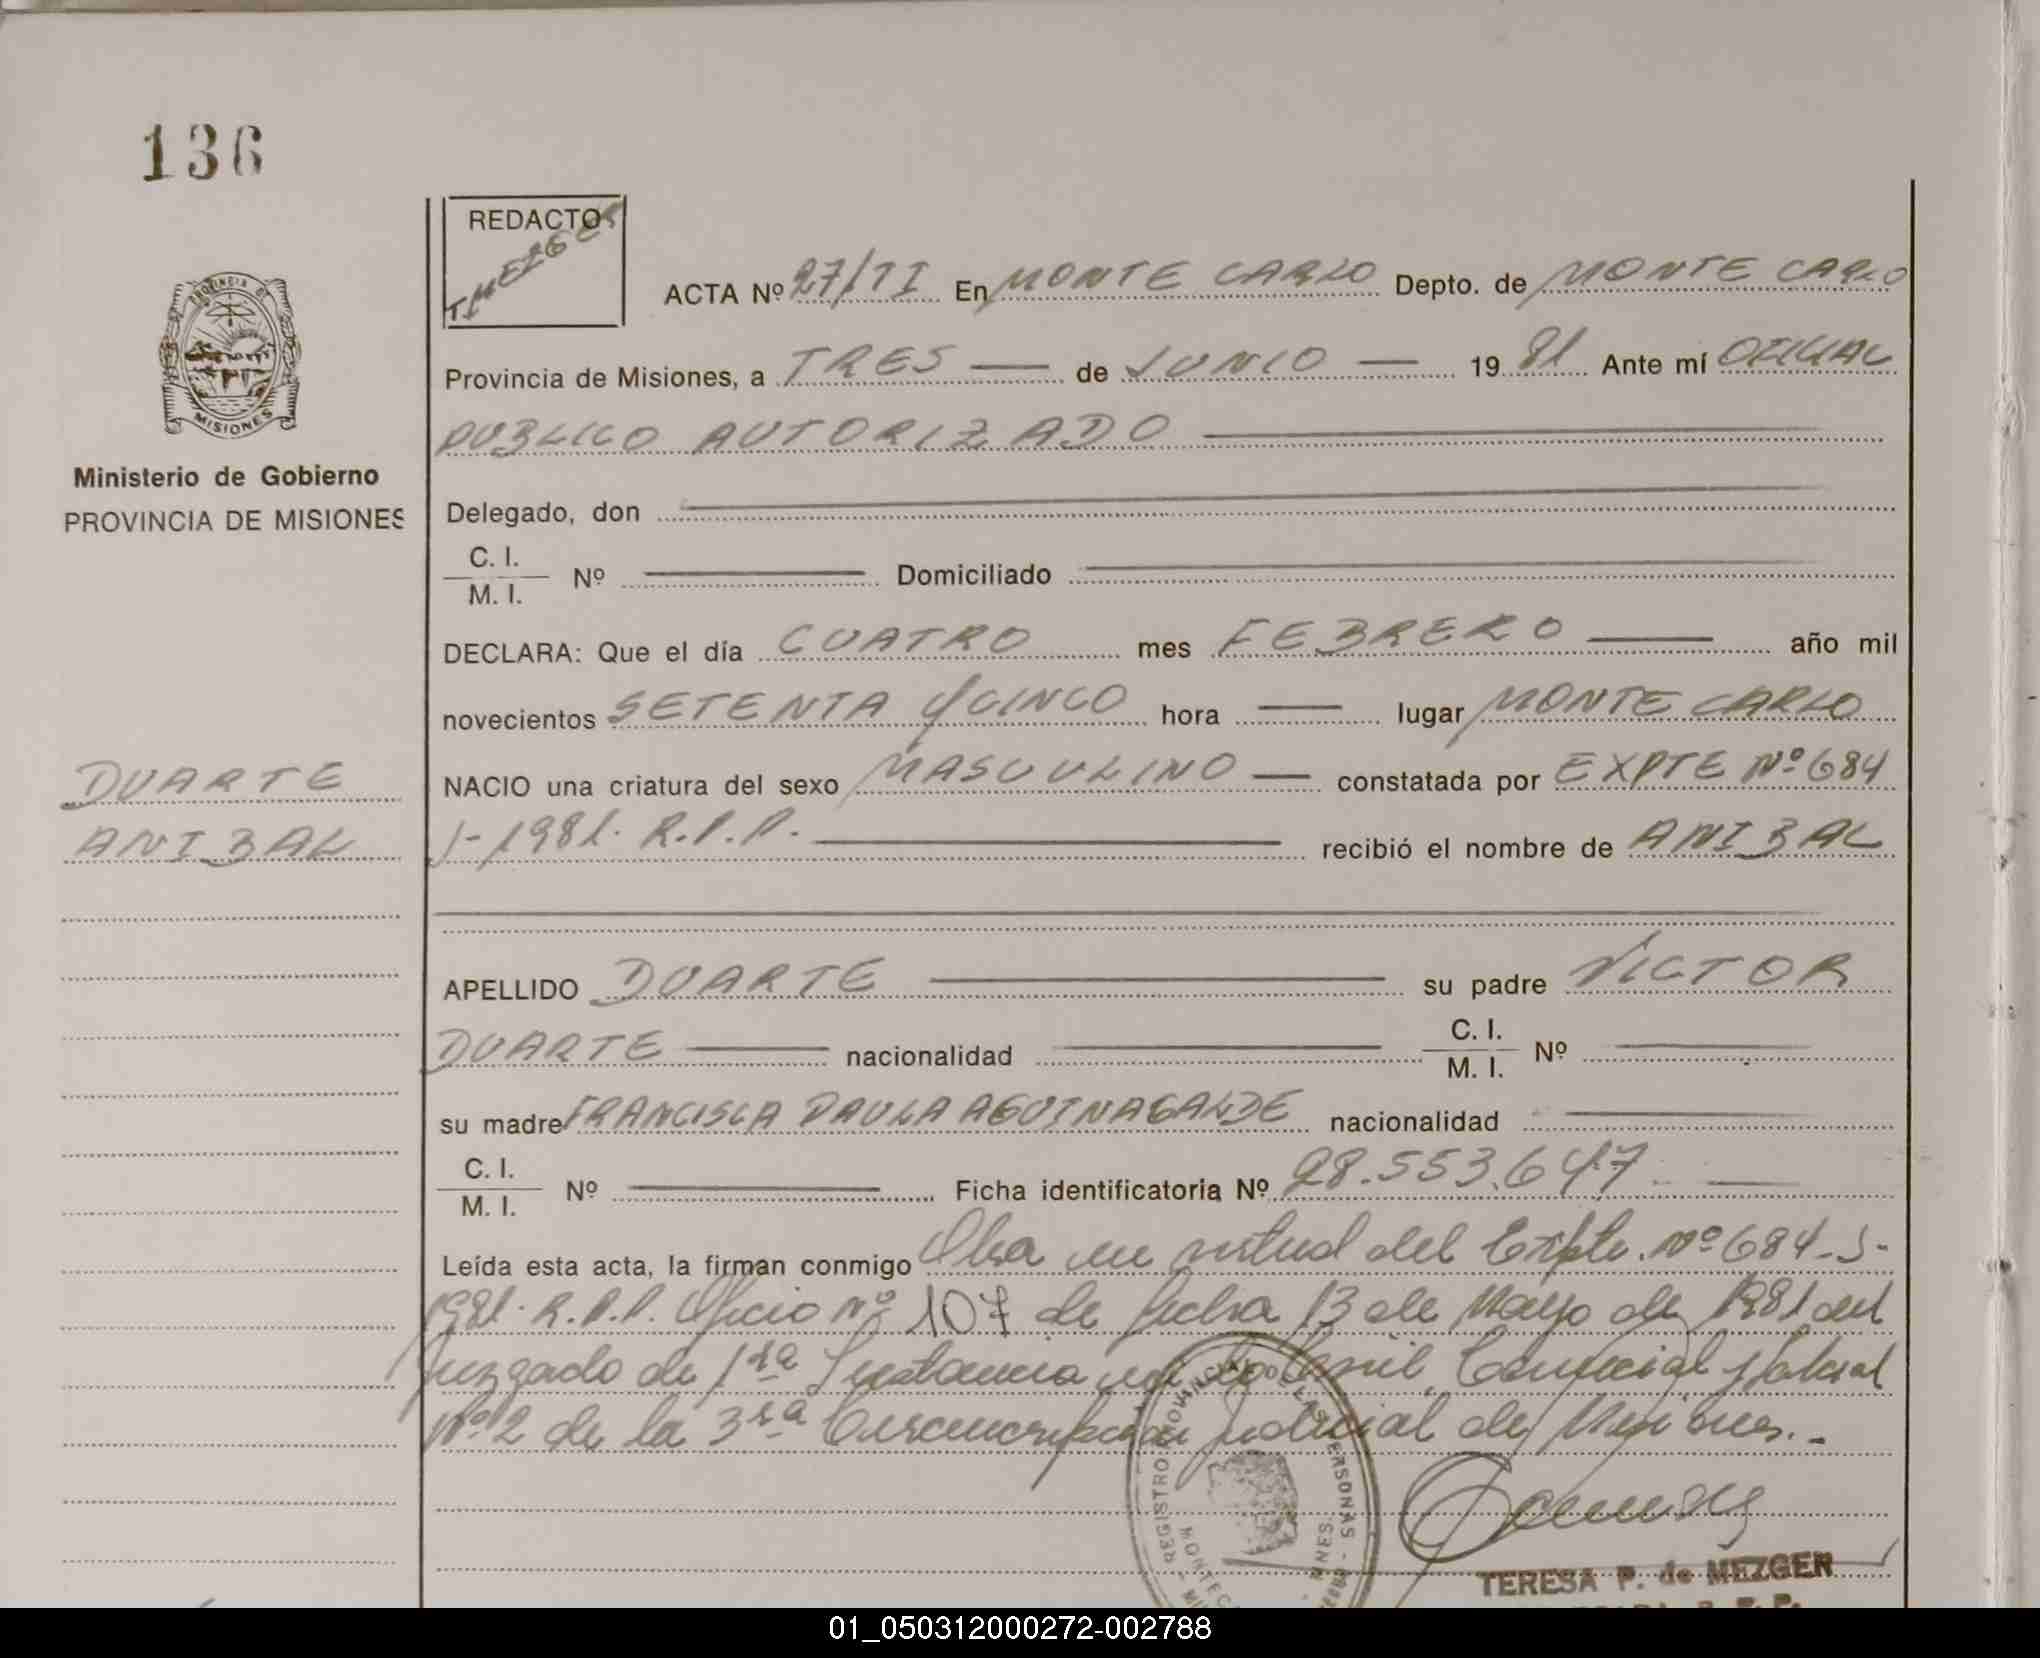 136
REDACTO
T. MEZGER
ACTA Nº 27/TI En MONTE CARLO Depto. de MONTE CARLO
PROVINCIA DE
MISIONES
Provincia de Misiones, a TRES de JUNIO 1981 Ante mí OFICIAL
PUBLICO AUTORIZADO
Ministerio de Gobierno
PROVINCIA DE MISIONES
Delegado, don
C. I.
M. I. Nº Domiciliado
DECLARA: Que el día CUATRO mes FEBRERO año mil
novecientos SETENTA Y CINCO hora lugar MONTE CARLO
DUARTE
ANIBAL
NACIO una criatura del sexo MASCULINO constatada por EXPTE Nº 684
J-1981. R.P.P. recibió el nombre de ANIBAL
APELLIDO DUARTE su padre VICTOR
DUARTE nacionalidad C. I.
M. I. Nº
su madre FRANCISCA PAULA AGUINAGALDE nacionalidad
C. I.
M. I. Nº Ficha identificatoria Nº 28.553.647
Leída esta acta, la firman conmigo Obra en virtud del Expte. Nº 684-J-
1981. R.P.P. Oficio Nº 107 de fecha 13 de Mayo de 1981 del
Juzgado de 1ra Instancia en lo Civil, Comercial y Laboral
Nº 2 de la 3ra Circunscripción Judicial de Misiones.-
REGISTRO PROVINCIAL DE LAS PERSONAS
TERESA P. de MEZGER
01_050312000272-002788